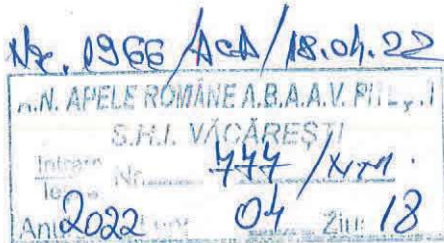 Nr. 1966/ACA/18.04.22
A.N. APELE ROMÂNE A.B.A.A.V. PITEȘTI
S.H.I. VĂCĂREȘTI
Intrare Nr. 777 /
Ieșire
Anul 2022 Luna 04 Ziua 18